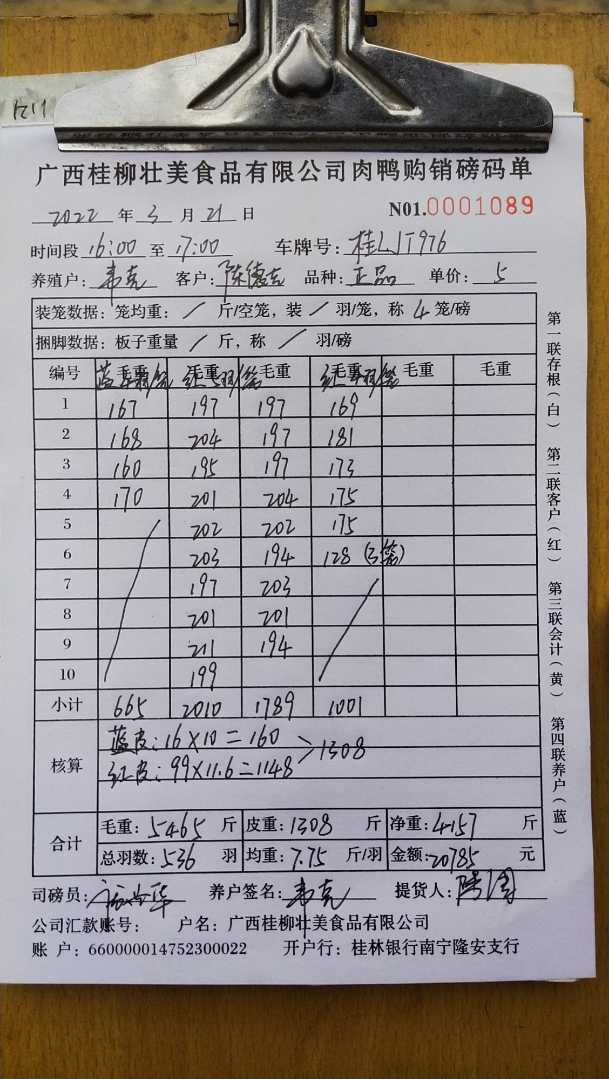 广西桂柳壮美食品有限公司肉鸭购销磅码单
2022 年 3 月 21 日 N01.0001089
时间段 16:00 至 17:00 车牌号: 桂AJT976
养殖户: 韦克 客户: 陈德克 品种: 正品 单价: 5
装笼数据: 笼均重: / 斤/空笼, 装 / 羽/笼, 称 4 笼/磅
捆脚数据: 板子重量 / 斤, 称 / 羽/磅
编号 毛重 毛重 毛重 毛重 毛重 毛重
1 167 197 197 169
2 168 204 197 181
3 160 195 197 173
4 170 201 204 175
5 202 202 175
6 203 194 128 (3笼)
7 197 203
8 201 201
9 211 194
10 199
小计 665 2010 1789 1001
核算 蓝皮: 16×10=160
红皮: 99×11.6=1148 >1308
合计 毛重: 5465 斤 皮重: 1308 斤 净重: 4157 斤
总羽数: 536 羽 均重: 7.75 斤/羽 金额: 20785 元
司磅员: 养户签名: 韦克 提货人:
公司汇款账号: 户名: 广西桂柳壮美食品有限公司
账 户: 660000014752300022 开户行: 桂林银行南宁隆安支行
第一联存根(白) 第二联客户(红) 第三联会计(黄) 第四联养户(蓝)